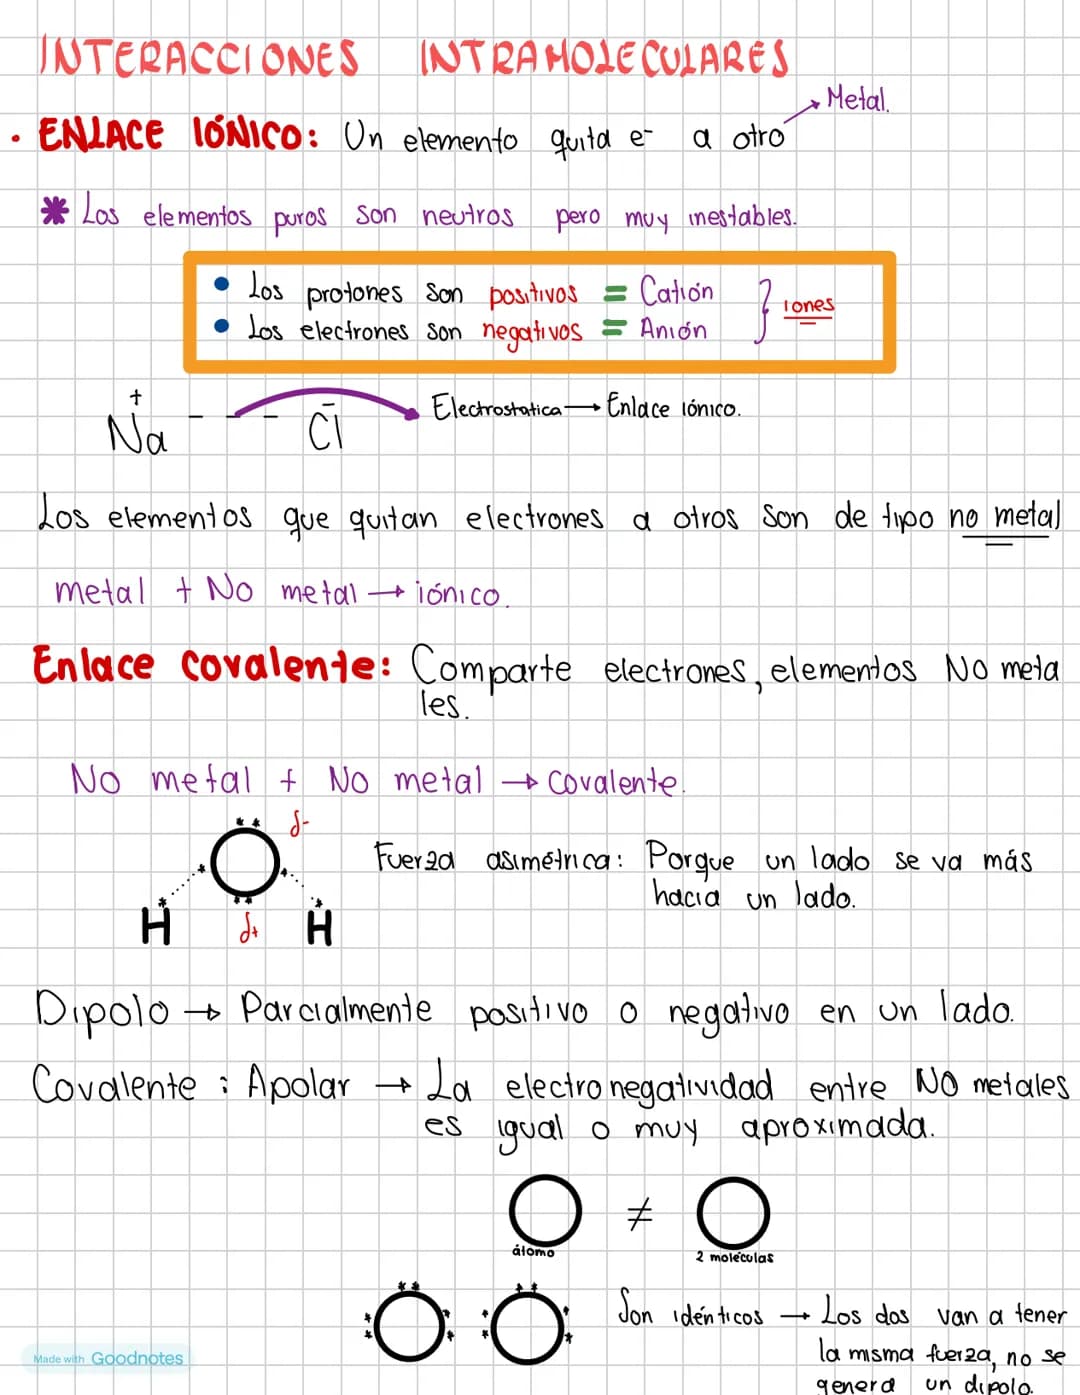 INTERACCIONES INTRAMOLECULARES
Metal.
• ENLACE IÓNICO: Un elemento quita e⁻ a otro
* Los elementos puros son neutros pero muy inestables.
• Los protones son positivos = Catión
• Los electrones son negativos = Anión
} iones
Na⁺ - - - Cl⁻ Electrostatica → Enlace iónico.
Los elementos que quitan electrones a otros son de tipo no metal
metal + No metal → iónico.
Enlace covalente: Comparte electrones, elementos No meta
les.
No metal + No metal → Covalente.
δ-
Fuerza asimétrica: Porque un lado se va más
hacia un lado.
H δ+ H
Dipolo → Parcialmente positivo o negativo en un lado.
Covalente: Apolar → La electronegatividad entre NO metales
es igual o muy aproximada.
O ≠ O
átomo 2 moléculas
O O Son idénticos → Los dos van a tener
la misma fuerza, no se
genera un dipolo.
Made with Goodnotes